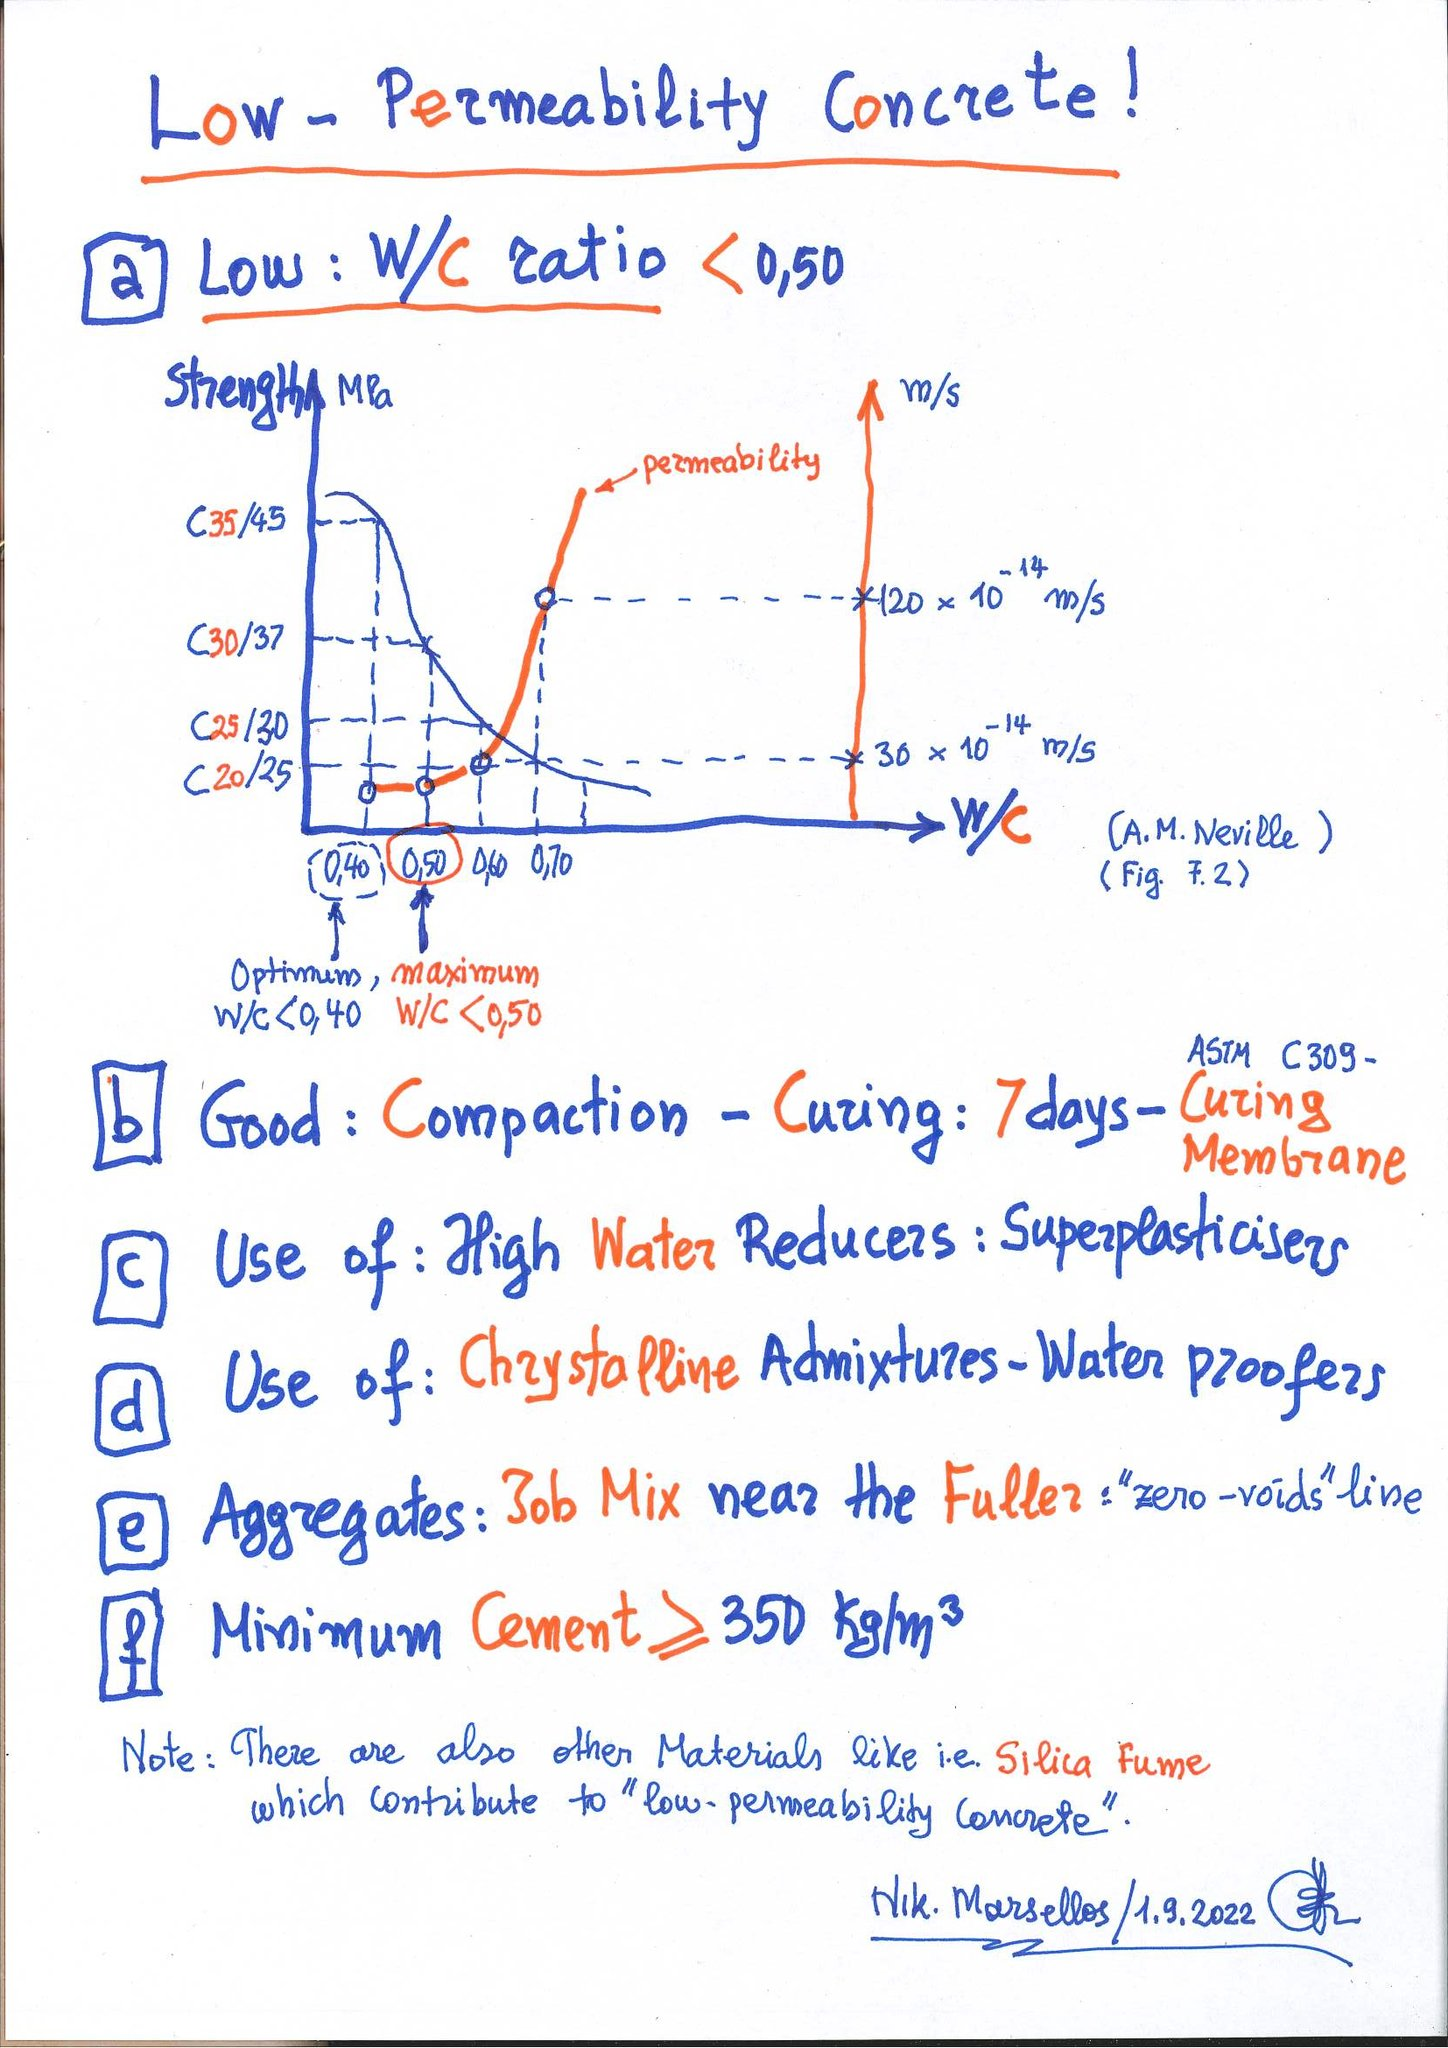 Low - Permeability Concrete!
a Low: W/C ratio < 0,50
Strength MPa
m/s
permeability
C35/45
120 × 10⁻¹⁴ m/s
C30/37
C25/30
30 × 10⁻¹⁴ m/s
C20/25
W/C
(A.M. Neville)
(Fig. 7.2)
0,40 0,50 0,60 0,70
Optimum, maximum
W/C<0,40 W/C<0,50
ASTM C309-
b Good: Compaction - Curing: 7 days - Curing
Membrane
c Use of: High Water Reducers: Superplasticisers
d Use of: Chrystalline Admixtures - Water proofers
e Aggregates: Job Mix near the Fuller: "zero-voids" line
f Minimum Cement ≥ 350 Kg/m³
Note: There are also other Materials like i.e. Silica Fume
which contribute to "low-permeability Concrete".
Nik. Marsellos/1.9.2022